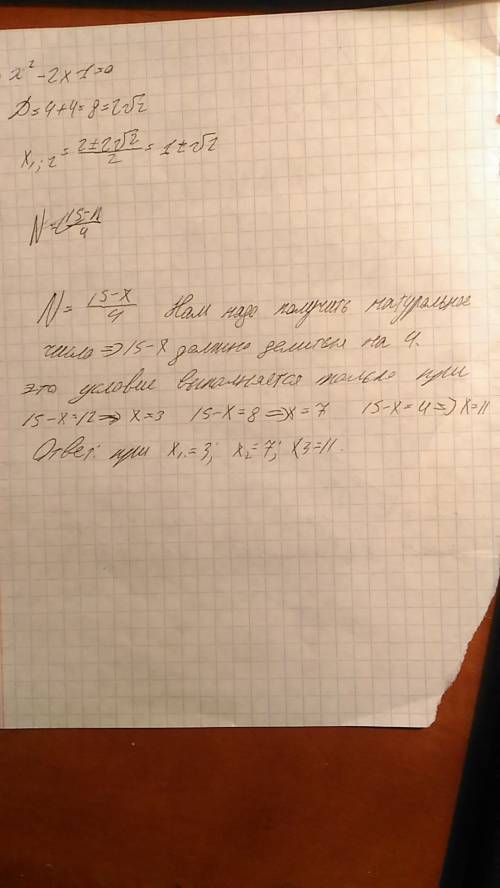 x² -2x-1=0
D=4+4=8=2√2
x₁;₂=(2±2√2)/2=1±√2
N=(15-x)/4 Нам надо получить натуральное
число ⇒ 15-x должно делится на 4.
это условие выполняется только при
15-x=12⇒ x=3 15-x=8 ⇒x=7 15-x=4⇒ x=11
Ответ: при x₁=3; x₂=7; x3=11.